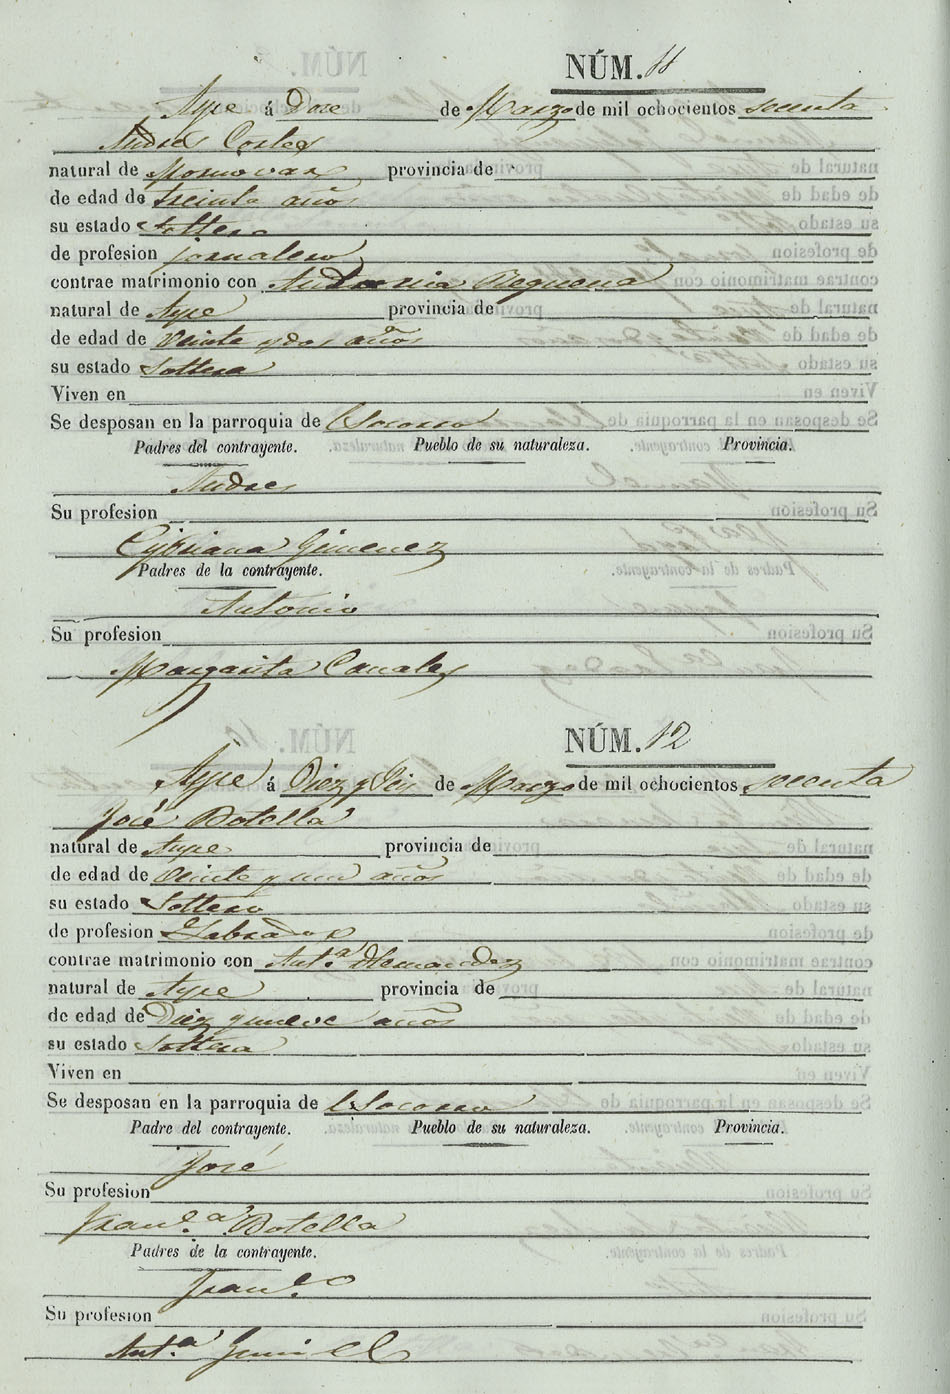 NÚM. 11
Aspe á Doce de Marzo de mil ochocientos sesenta
Andres Cortes
natural de Monovar provincia de
de edad de treinta años
su estado soltero
de profesion jornalero
contrae matrimonio con Antonia Requena
natural de Aspe provincia de
de edad de veinte y dos años
su estado Soltera
Viven en
Se desposan en la parroquia de Socorro
Padres del contrayente. Pueblo de su naturaleza. Provincia.
Andres
Su profesion
Cipriana Gimenez
Padres de la contrayente.
Antonio
Su profesion
Margarita Canales
NÚM. 12
Aspe á Diez y Seis de Marzo de mil ochocientos sesenta
José Botella
natural de Aspe provincia de
de edad de veinte y un años
su estado Soltero
de profesion Labrador
contrae matrimonio con Ant.ª Hernandez
natural de Aspe provincia de
de edad de Diez y nueve años
su estado Soltera
Viven en
Se desposan en la parroquia de Socorro
Padre del contrayente. Pueblo de su naturaleza. Provincia.
José
Su profesion
Fran.ca Botella
Padres de la contrayente.
Fran.co
Su profesion
Ant.ª